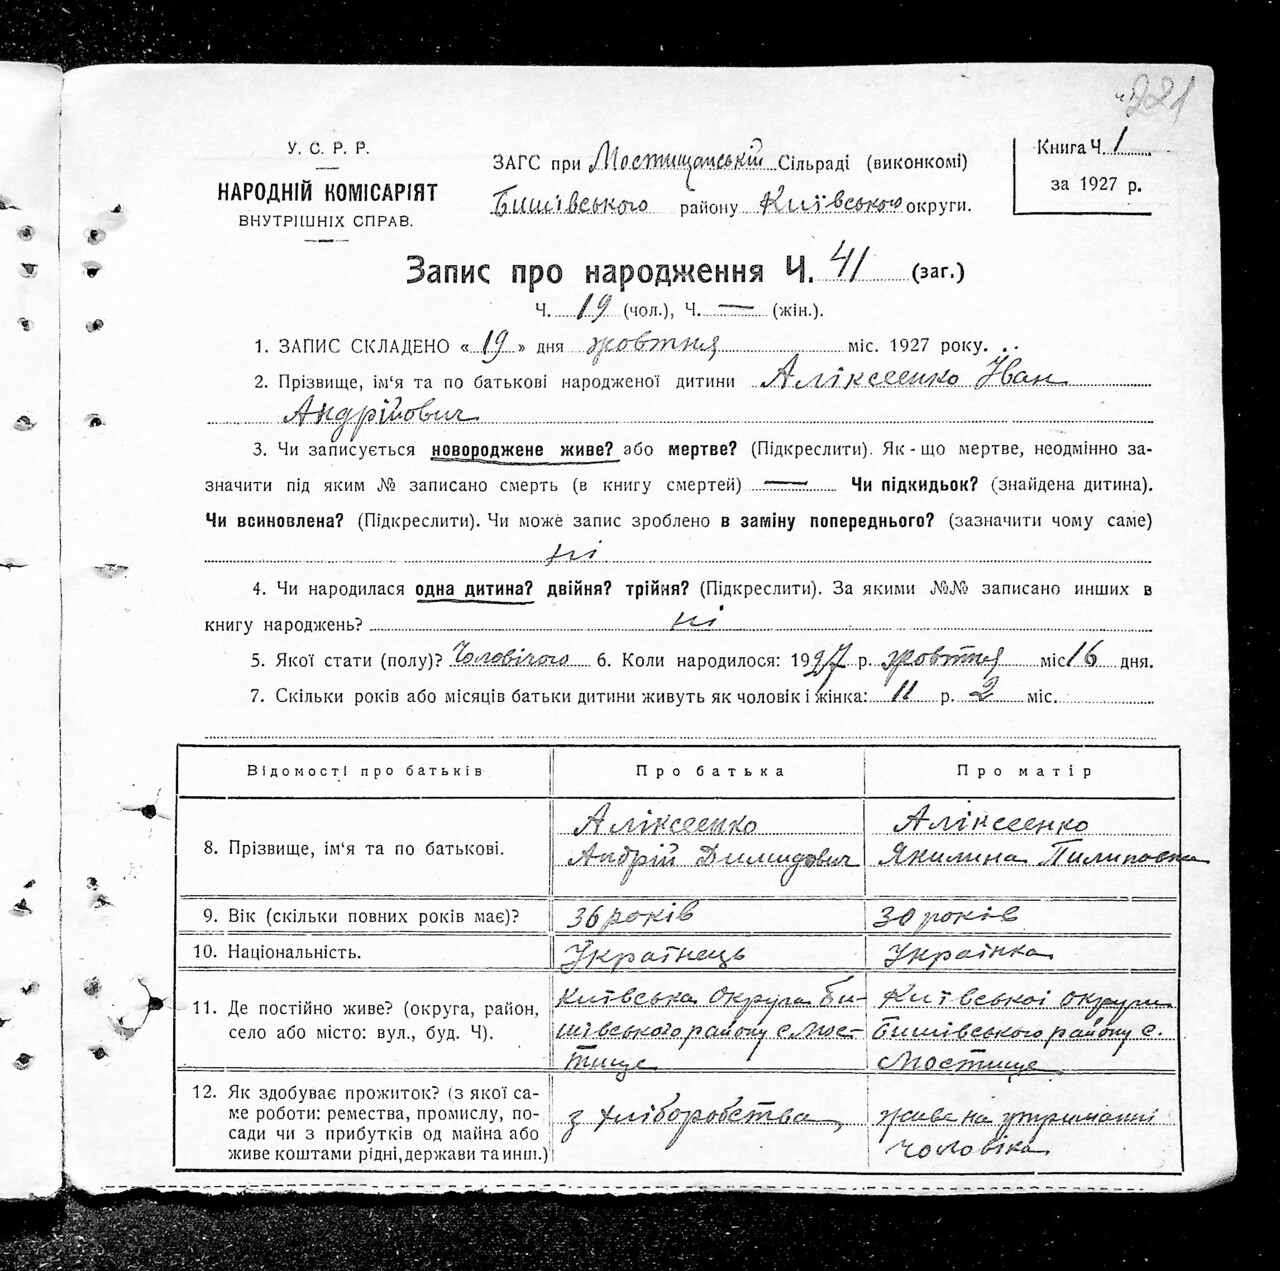 281
У. С. Р. Р.
НАРОДНІЙ КОМІСАРІЯТ
ВНУТРІШНІХ СПРАВ.
ЗАГС при Мостищанській Сільраді (виконкомі)
Бишівського району Київського округи.
Книга Ч. 1
за 1927 р.
Запис про народження Ч. 41 (заг.)
Ч. 19 (чол.), Ч. — (жін.).
1. ЗАПИС СКЛАДЕНО « 19 » дня жовтня міс. 1927 року.
2. Прізвище, ім‘я та по батькові народженої дитини Аліксеенко Іван
Андрійович
3. Чи записується новороджене живе? або мертве? (Підкреслити). Як-що мертве, неодмінно за-
значити під яким № записано смерть (в книгу смертей) — Чи підкидьок? (знайдена дитина).
Чи всиновлена? (Підкреслити). Чи може запис зроблено в заміну попереднього? (зазначити чому саме)
ні
4. Чи народилася одна дитина? двійня? трійня? (Підкреслити). За якими №№ записано инших в
книгу народжень? ні
5. Якої стати (полу)? Чоловічого 6. Коли народилося: 1927 р. жовтня міс 16 дня.
7. Скільки років або місяців батьки дитини живуть як чоловік і жінка: 11 р. 2 міс.
Відомості про батьків
Про батька
Про матір
8. Прізвище, ім‘я та по батькові.
Аліксеенко
Андрій Димидович
Аліксеенко
Якилина Пилиповна
9. Вік (скільки повних років має)?
36 років
30 років
10. Національність.
Українець
Українка
11. Де постійно живе? (округа, район,
село або місто: вул., буд. Ч).
Київська округа Би-
шівського району с. Мос-
тище
Київської округи
Бишівського району с.
Мостище
12. Як здобуває прожиток? (з якої са-
ме роботи: ремества, промислу, по-
сади чи з прибутків од майна або
живе коштами рідні, держави та инш.)
з хліборобства
живе на утриманні
чоловіка